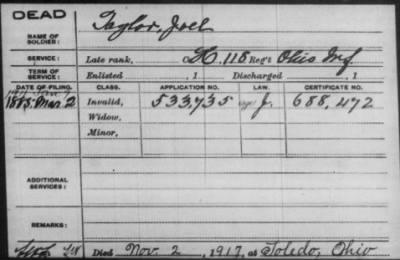 DEAD
NAME OF SOLDIER: Taylor, Joel
SERVICE: Late rank, Co H, 115 Reg't Ohio Inf.
TERM OF SERVICE: Enlisted , 1 Discharged , 1
DATE OF FILING. CLASS. APPLICATION NO. LAW. CERTIFICATE NO.
1885. Mar. 2 Invalid, 533,735 J. 688,472
Widow,
Minor,
ADDITIONAL SERVICES:
REMARKS:
Died Nov. 2, 1917, at Toledo, Ohio